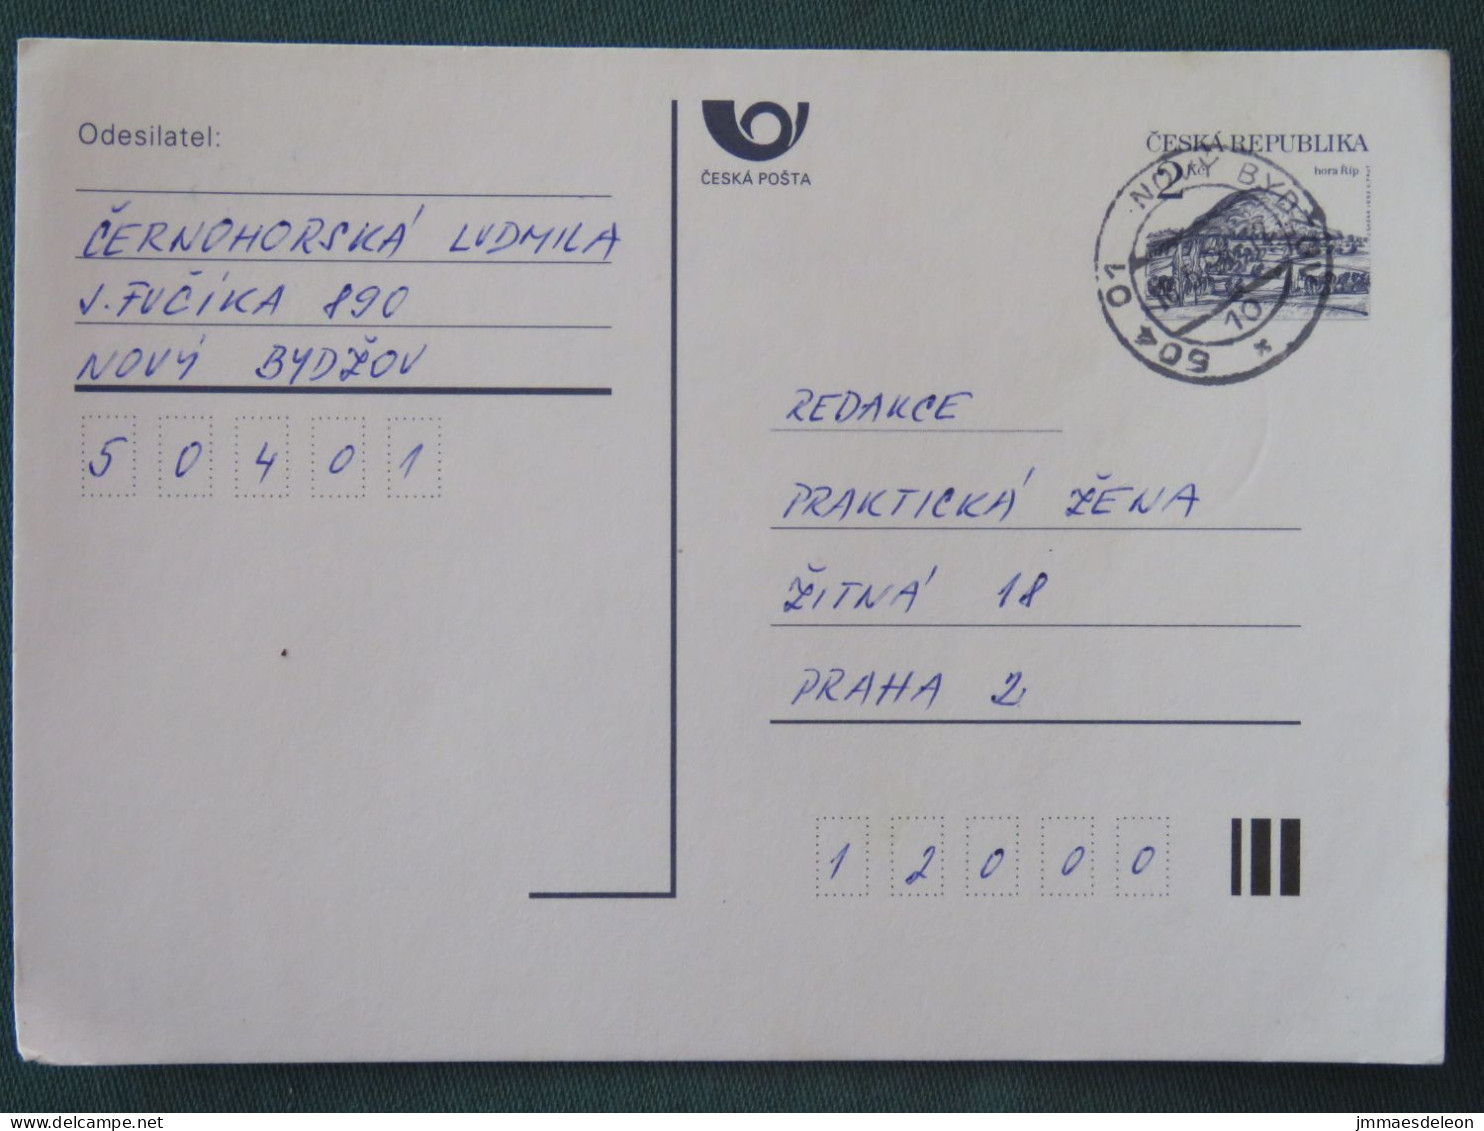 Odesilatel:
ČERNOHORSKÁ LUDMILA
J. FUČÍKA 890
NOVÝ BYDŽOV
5 0 4 0 1
ČESKÁ POŠTA
ČESKÁ REPUBLIKA
2 Kč
hora Říp
504 01 NOVÝ BYDŽOV
REDAKCE
PRAKTICKÁ ŽENA
ŽITNÁ 18
PRAHA 2
1 2 0 0 0
delcampe.net
jmmaesdeleon